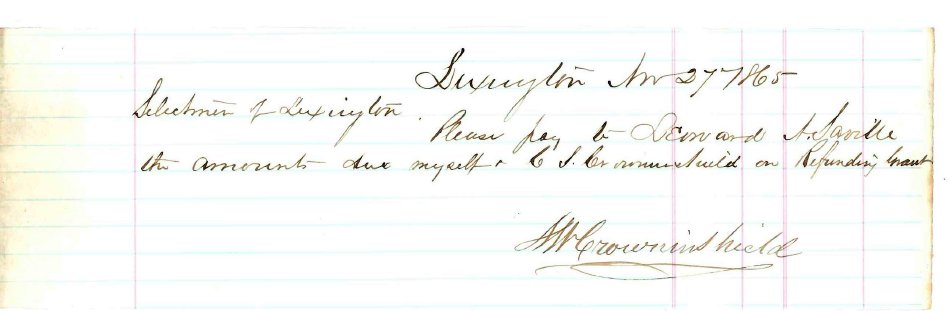 Lexington Nov 27 1865
Selectmen of Lexington
Please pay to Leonard A. Saville
the amounts due myself & C S. Crowninshield on Refunding Grant
A W Crowninshield